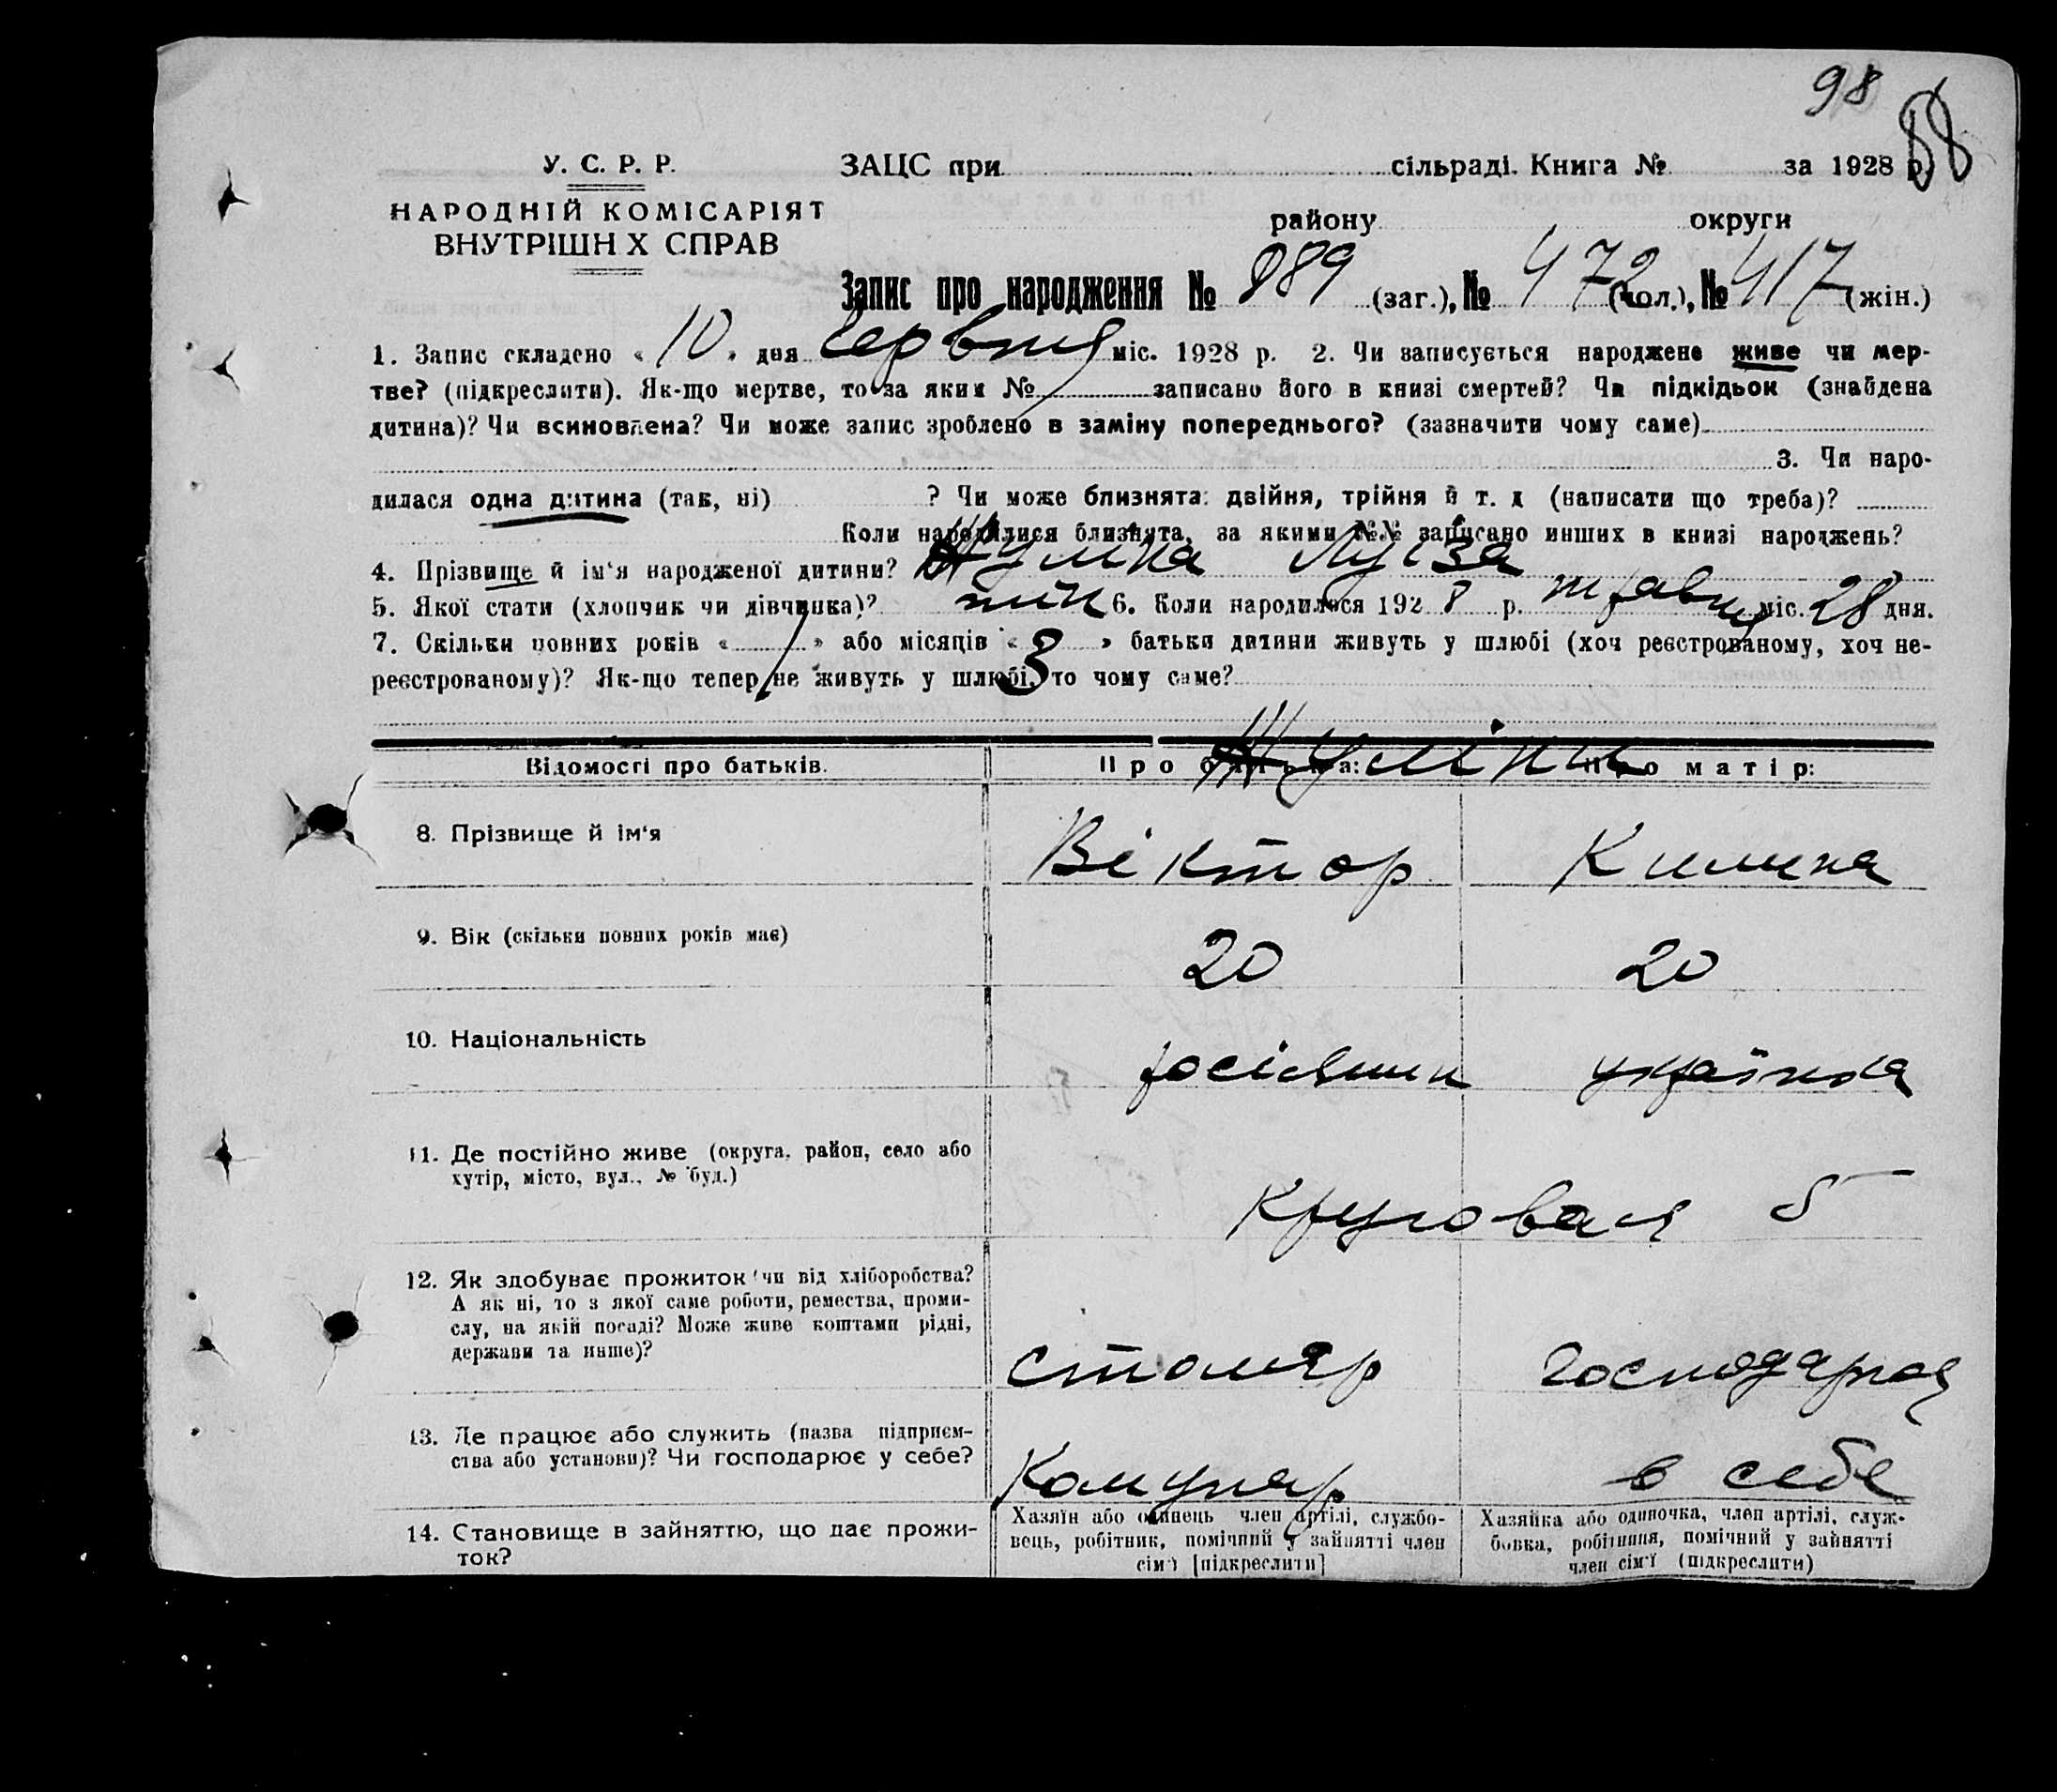 98
88
У. С. Р. Р.
НАРОДНІЙ КОМІСАРІЯТ
ВНУТРІШН Х СПРАВ
ЗАЦС при сільраді. Книга № за 1928 р.
району округи
Запис про народження № 889 (заг.), № 472 (чол.), № 417 (жін.)
1. Запис складено « 10 » дня червня міс. 1928 р. 2. Чи записується народжене живе чи мер-
тве? (підкреслити). Як-що мертве, то за яким № записано його в книзі смертей? Чи підкідьок (знайдена
дитина)? Чи всиновлена? Чи може запис зроблено в заміну попереднього? (зазначити чому саме)
3. Чи наро-
дилася одна дитина (так, ні) ? Чи може близнята: двійня, трійня й т. д (написати що треба)?
Коли народилися близнята, за якими №№ записано инших в книзі народжень?
4. Прізвище й ім'я народженої дитини? Луіза
5. Якої стати (хлопчик чи дівчинка)? жін 6. Коли народилося 1928 р. травня міс. 28 дня.
7. Скільки повних років « » або місяців « 3 » батьки дитини живуть у шлюбі (хоч реєстрованому, хоч не-
реєстрованому)? Як-що тепер не живуть у шлюбі, то чому саме?
Відомості про батьків. Про батька: Про матір:
8. Прізвище й ім'я Віктор Килина
9. Вік (скільки повних років має) 20 20
10. Національність росіянин українка
11. Де постійно живе (округа, район, село або
хутір, місто, вул., № буд.) Круговая 5
12. Як здобуває прожиток (чи від хліборобства?
А як ні, то з якої саме роботи, ремества, проми-
слу, на якій посаді? Може живе коштами рідні,
держави та инше)? столяр господарка
13. Де працює або служить (назва підприєм-
ства або установи)? Чи господарює у себе? Комунар в себе
14. Становище в зайняттю, що дає прожи-
ток?
Хазяїн або одинець член артілі, службо-
вець, робітник, помічний у зайнятті член
сім'ї [підкреслити]
Хазяйка або одиночка, член артілі, служ-
бовка, робітниця, помічний у зайнятті
член сім'ї (підкреслити)